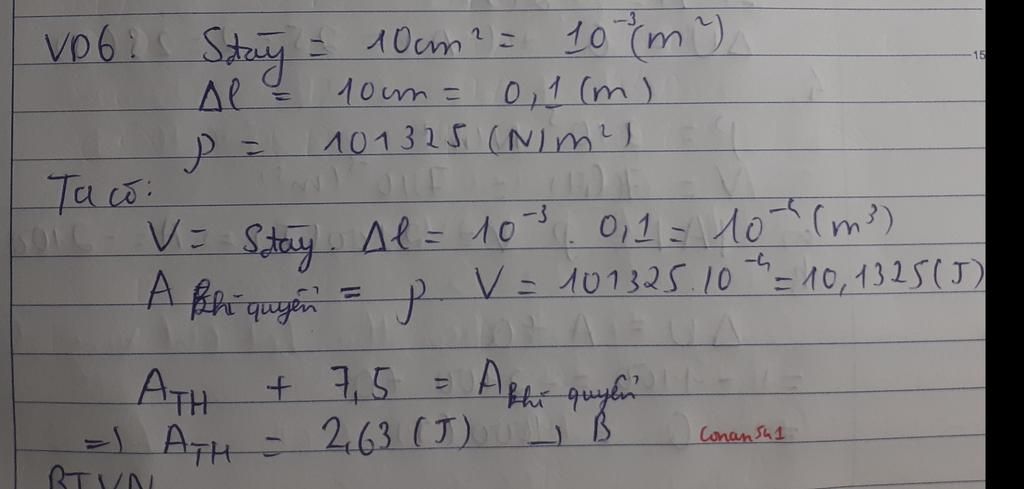 VD6: Stây = 10cm² = 10⁻³(m²)
15
Δl = 10cm = 0,1 (m)
p = 101325 (N/m²)
Ta có:
V = Stây . Δl = 10⁻³ . 0,1 = 10⁻⁴ (m³)
A khí quyển = p. V = 101325.10⁻⁴ = 10,1325 (J)
A_TH + 7,5 = A khí quyển
=> A_TH = 2,63 (J) → B
Conan541
BTVN